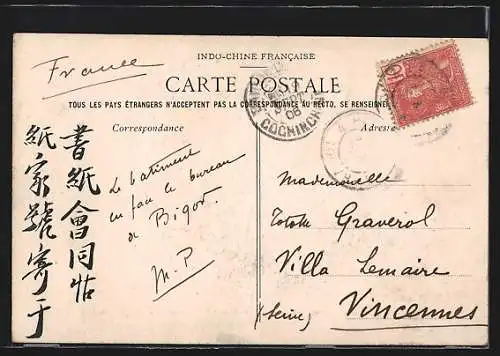 France
INDO-CHINE FRANÇAISE
CARTE POSTALE
TOUS LES PAYS ÉTRANGERS N'ACCEPTENT PAS LA CORRESPONDANCE AU RECTO, SE RENSEIGNER
Correspondance
Adresse
COCHINCHINE
10
書紙會同帖
紙家號寄于
Le bâtiment
en face le bureau
de Bigot.
M-P
Mademoiselle
Totote Graverol
Villa Lemaire
(Seine) Vincennes